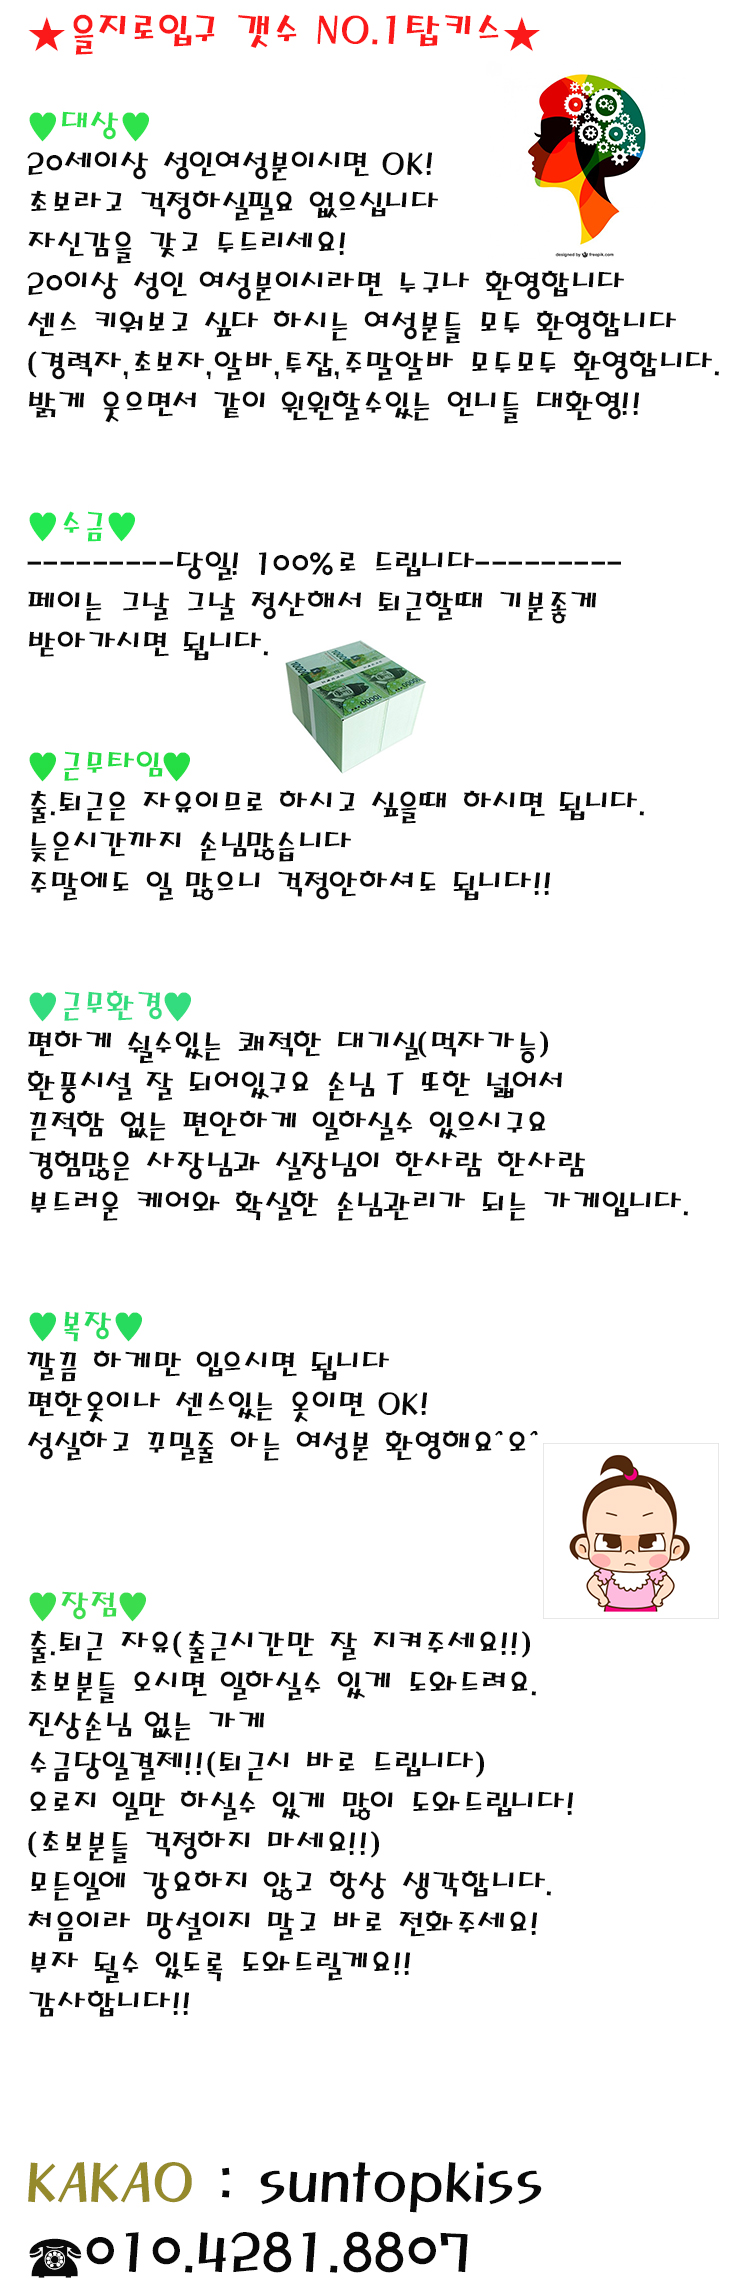 ★을지로입구 갯수 NO.1탑키스★
♥대상♥
20세이상 성인여성분이시면 OK!
초보라고 걱정하실필요 없으십니다
자신감을 갖고 두드리세요!
designed by freepik.com
20이상 성인 여성분이시라면 누구나 환영합니다
센스 키워보고 싶다 하시는 여성분들 모두 환영합니다
(경력자,초보자,알바,투잡,주말알바 모두모두 환영합니다.
밝게 웃으면서 같이 윈윈할수있는 언니들 대환영!!
♥수금♥
---------당일! 100%로 드립니다---------
페이는 그날 그날 정산해서 퇴근할때 기분좋게
받아가시면 됩니다.
10000
10000
10000
♥근무타임♥
출.퇴근은 자유이므로 하시고 싶을때 하시면 됩니다.
늦은시간까지 손님많습니다
주말에도 일 많으니 걱정안하셔도 됩니다!!
♥근무환경♥
편하게 쉴수있는 쾌적한 대기실(먹자가능)
환풍시설 잘 되어있구요 손님 T 또한 넓어서
끈적함 없는 편안하게 일하실수 있으시구요
경험많은 사장님과 실장님이 한사람 한사람
부드러운 케어와 확실한 손님관리가 되는 가게입니다.
♥복장♥
깔끔 하게만 입으시면 됩니다
편한옷이나 센스있는 옷이면 OK!
성실하고 꾸밀줄 아는 여성분 환영해요^오^
♥장점♥
출.퇴근 자유(출근시간만 잘 지켜주세요!!)
초보분들 오시면 일하실수 있게 도와드려요.
진상손님 없는 가게
수금당일결제!!(퇴근시 바로 드립니다)
오로지 일만 하실수 있게 많이 도와드립니다!
(초보분들 걱정하지 마세요!!)
모든일에 강요하지 않고 항상 생각합니다.
처음이라 망설이지 말고 바로 전화주세요!
부자 될수 있도록 도와드릴게요!!
감사합니다!!
KAKAO : suntopkiss
☎010.4281.8807